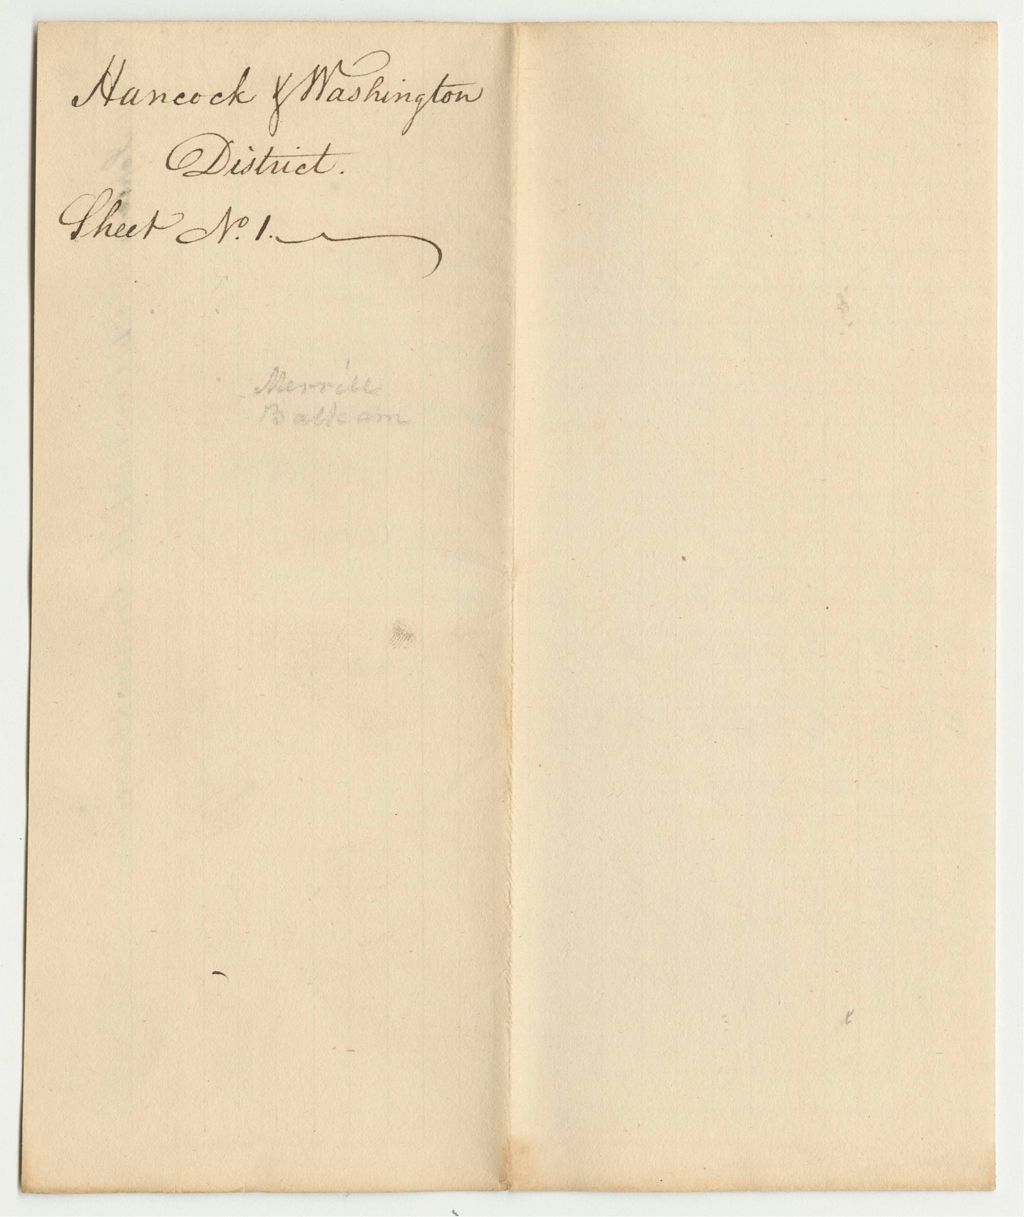 Hancock & Washington
District.
Sheet No. 1.
Merrill